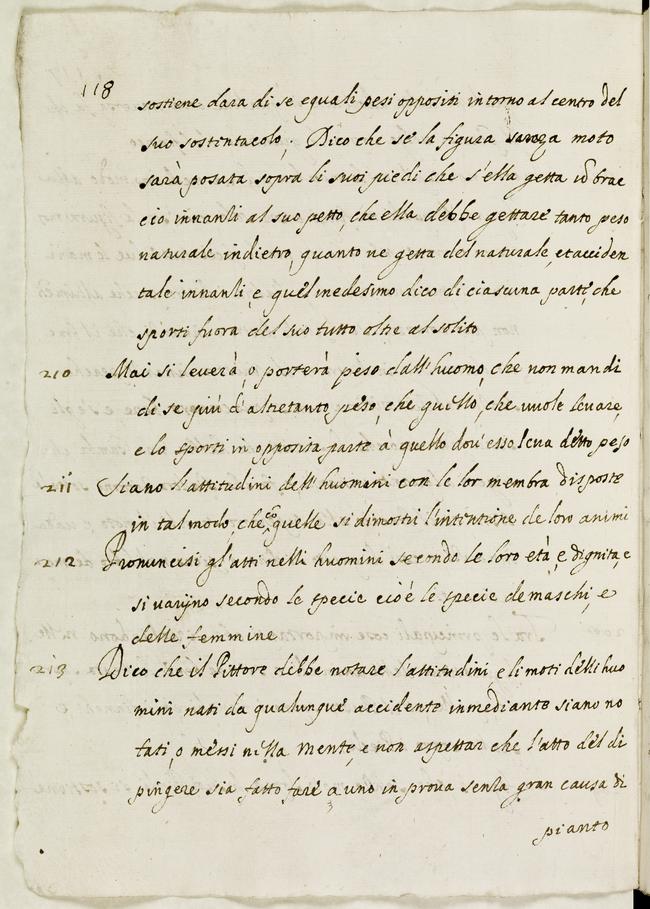 118
sostiene dara di se equali pesi oppositi intorno al centro del
suo sostentacolo; Dico che se la figura sanza moto
sarà posata sopra li suoi piedi che s'ella getta uō brac
cio innanzi al suo petto, che ella debbe gettare tanto peso
naturale indietro, quanto ne getta del naturale, et acciden
tale innanzi, e quel medesimo dico di ciascuna parte, che
sporti fuora del suo tutto oltre al solito
210 Mai si leverà, o porterà peso dall'huomo, che non mandi
di se più d'altretanto peso, che quello, che vuole levare,
e lo sporti in opposita parte à quello dov'esso leva detto peso
211 Siano l'attitudini dell'huomini con le lor membra disposte
in tal modo, che co quelle si dimostri l'intentione de loro animi
212 Pronuncisi gl'atti nelli huomini secondo le loro età, e dignita, e
si varijno secondo le specie cioè le specie de maschi, e
delle femmine
213 Dico che il Pittore debbe notare l'attitudini, e li moti delli huo
mini nati da qualunque accidente inmediante siano no
tati, o messi nella mente, e non aspettar che l'atto del di
pingere sia fatto fare a uno in prova senza gran causa di
pianto